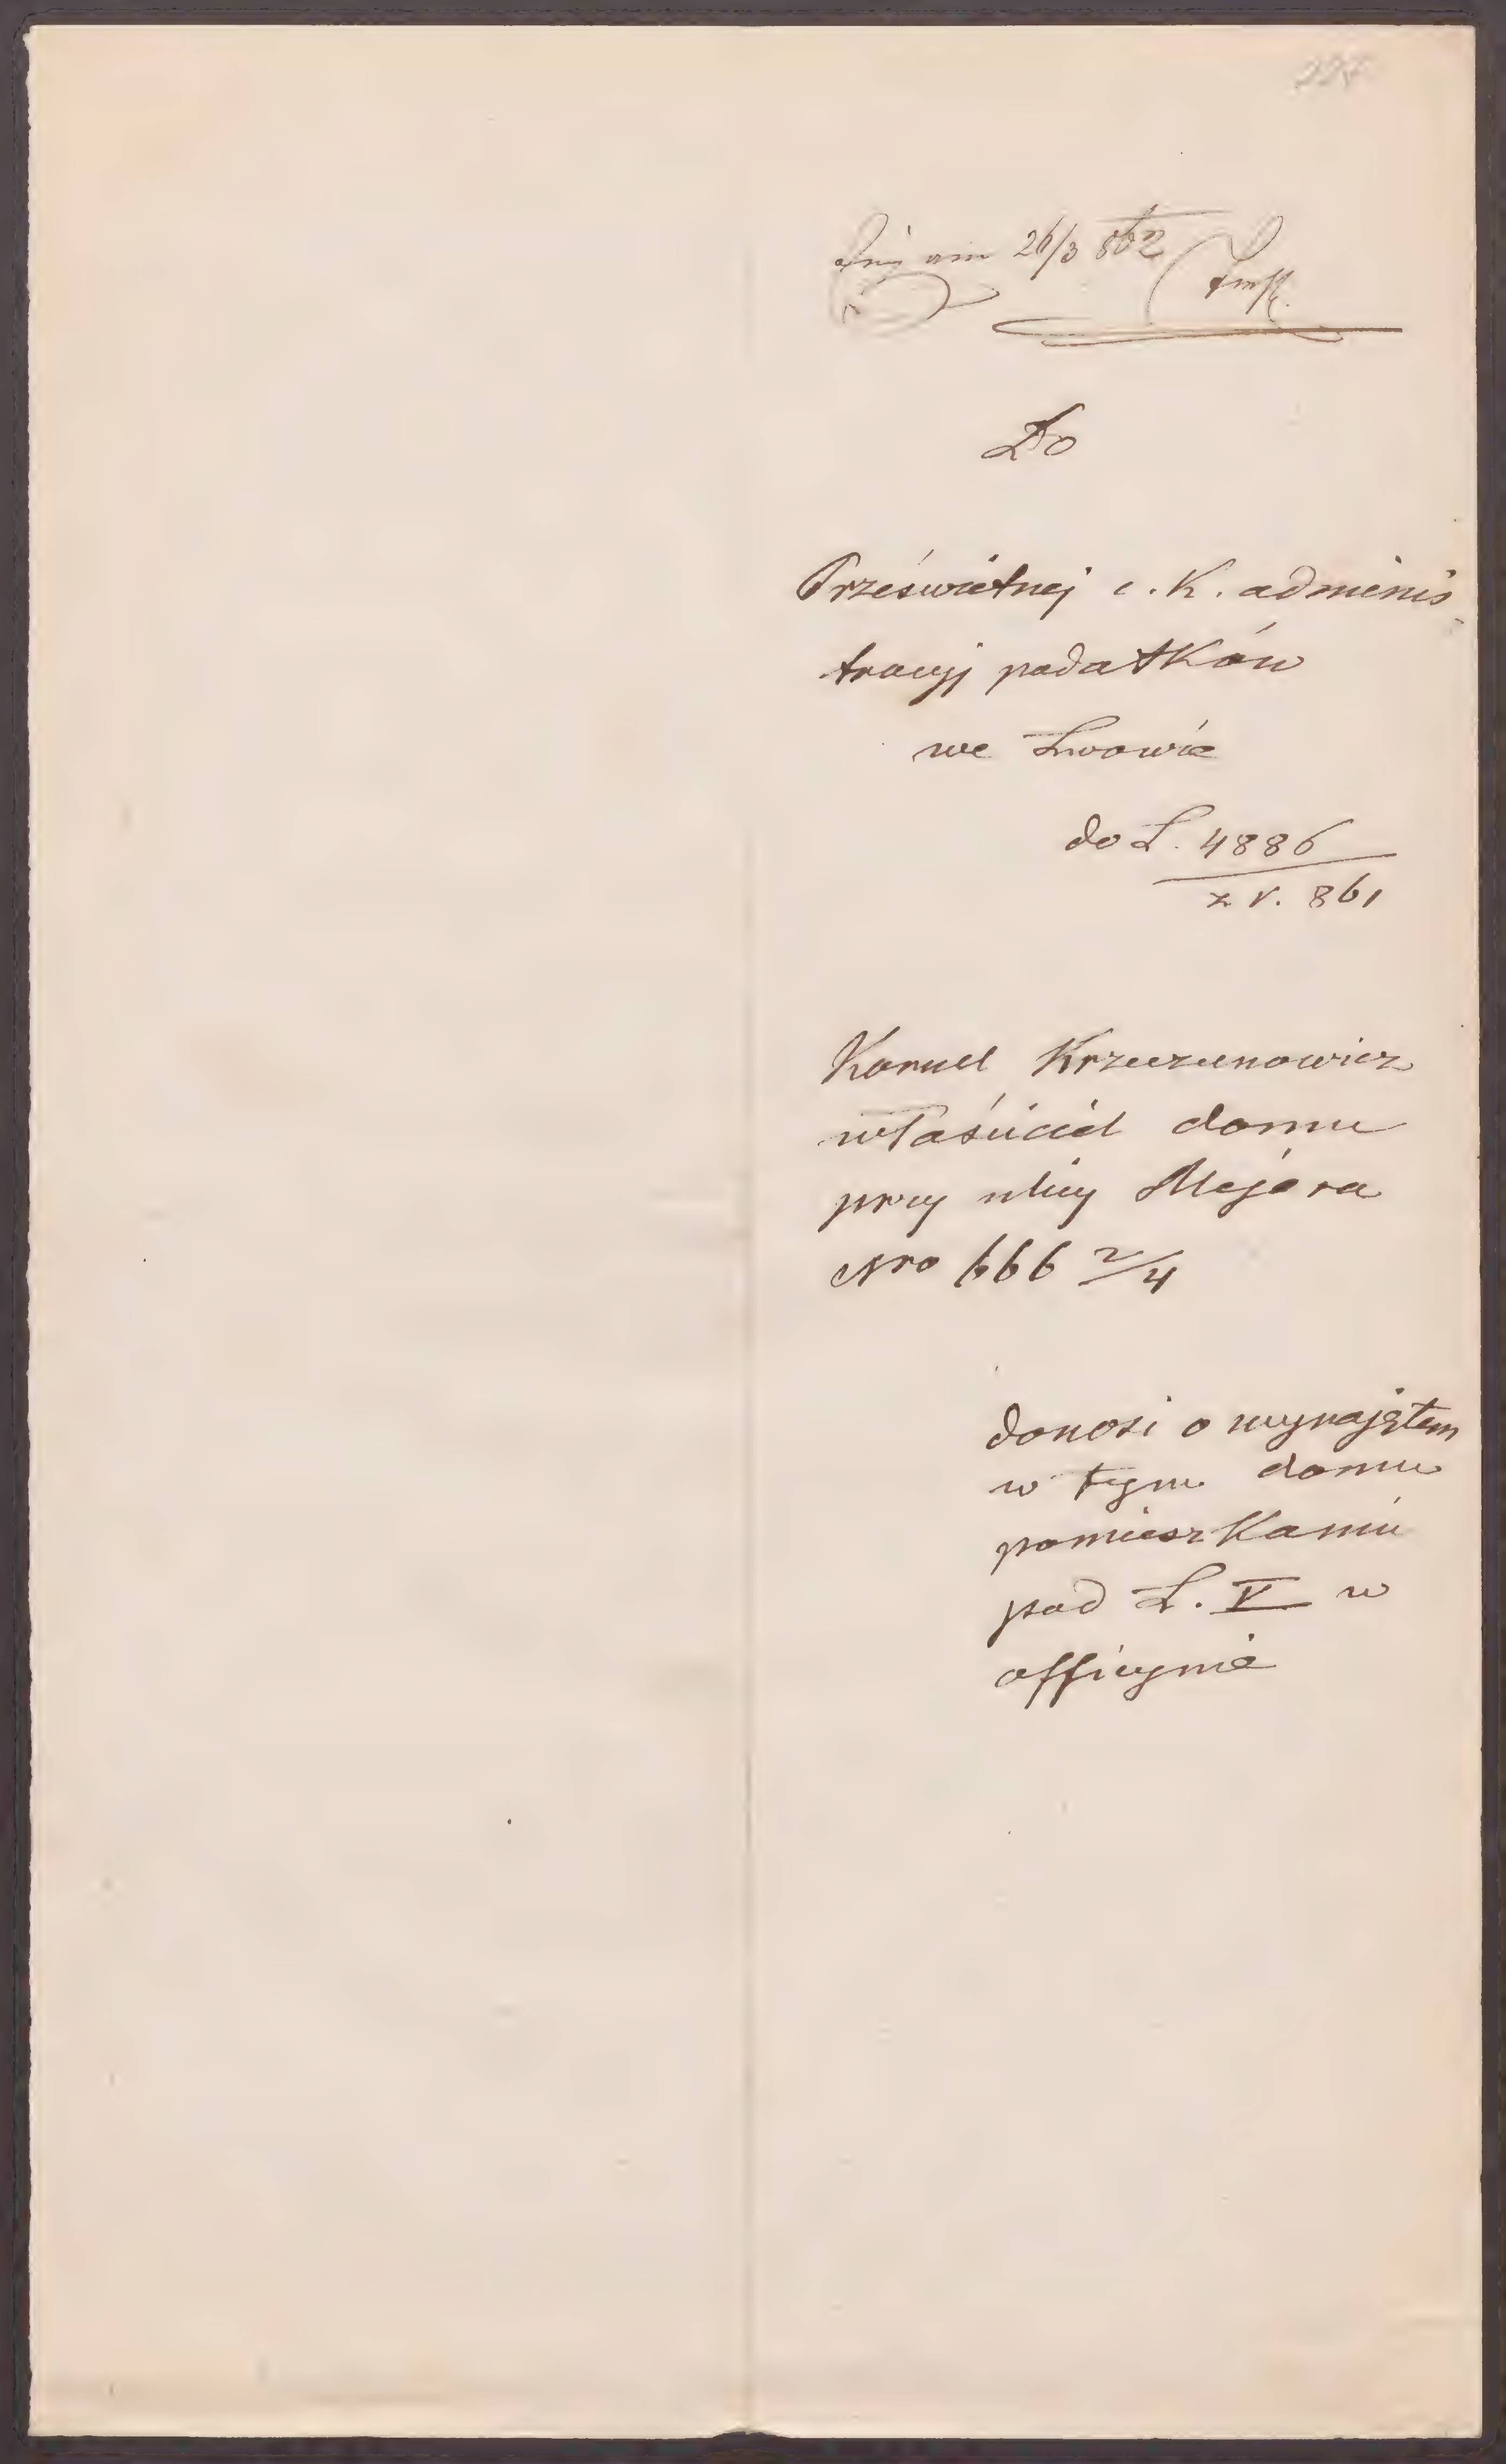 26/3 862
Do
Prześwietnej c. K. adminis-
tracyj podatków
we Lwowie
do L. 4886
z r. 861
Kornel Krzeczunowicz
właściciel domu
przy ulicy Mejera
Nro 666 2/4
donosi o wynajętem
w tym domu
pomieszkaniu
pod L. V w
officynie